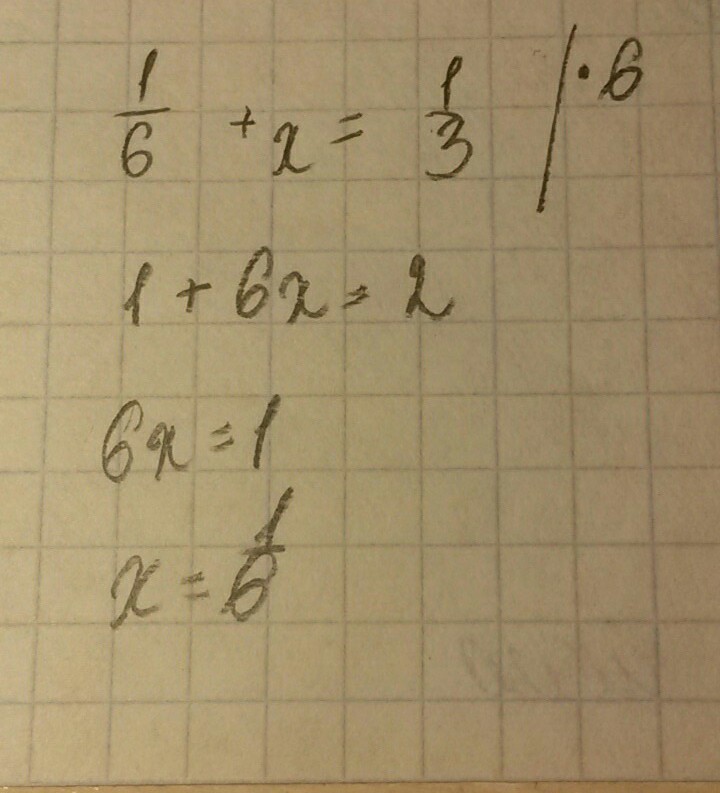 1/6 + x = 1/3 | · 6
1 + 6x = 2
6x = 1
x = 1/6